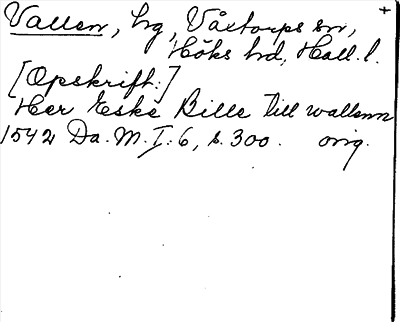 Vallen, hg, Våxtorps sn, +
Höks hd, Hall. l.
[Opskrift:]
Her Eske Bille till wallenn
1542 Da. M. I: 6, s. 300. orig.